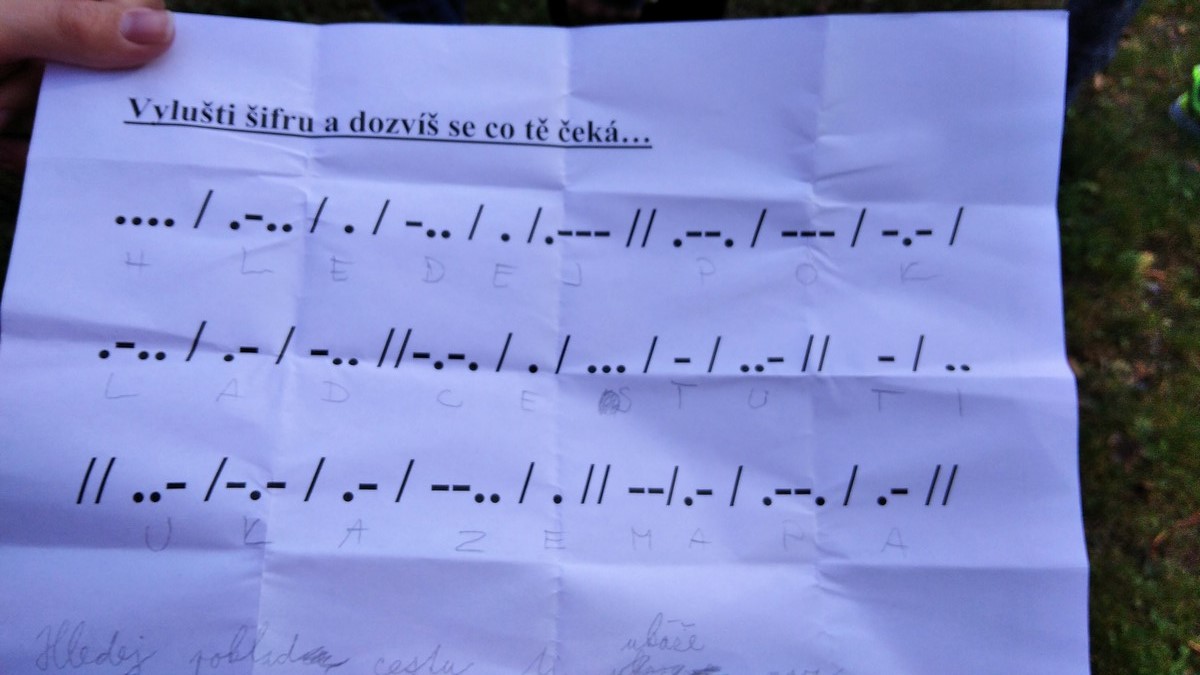 Vylušti šifru a dozvíš se co tě čeká...
.... / .-.. / . / -.. / . /.--- // .--. / --- / -.- /
H L E D E J P O K
.-.. / .- / -.. //-.-. / . / ... / - / ..- // - / ..
L A D C E S T U T I
// ..- /-.- / .- / --.. / . // --/.- / .--. / .- //
U K A Z E M A P A
ukáže
Hledej poklad cestu ti